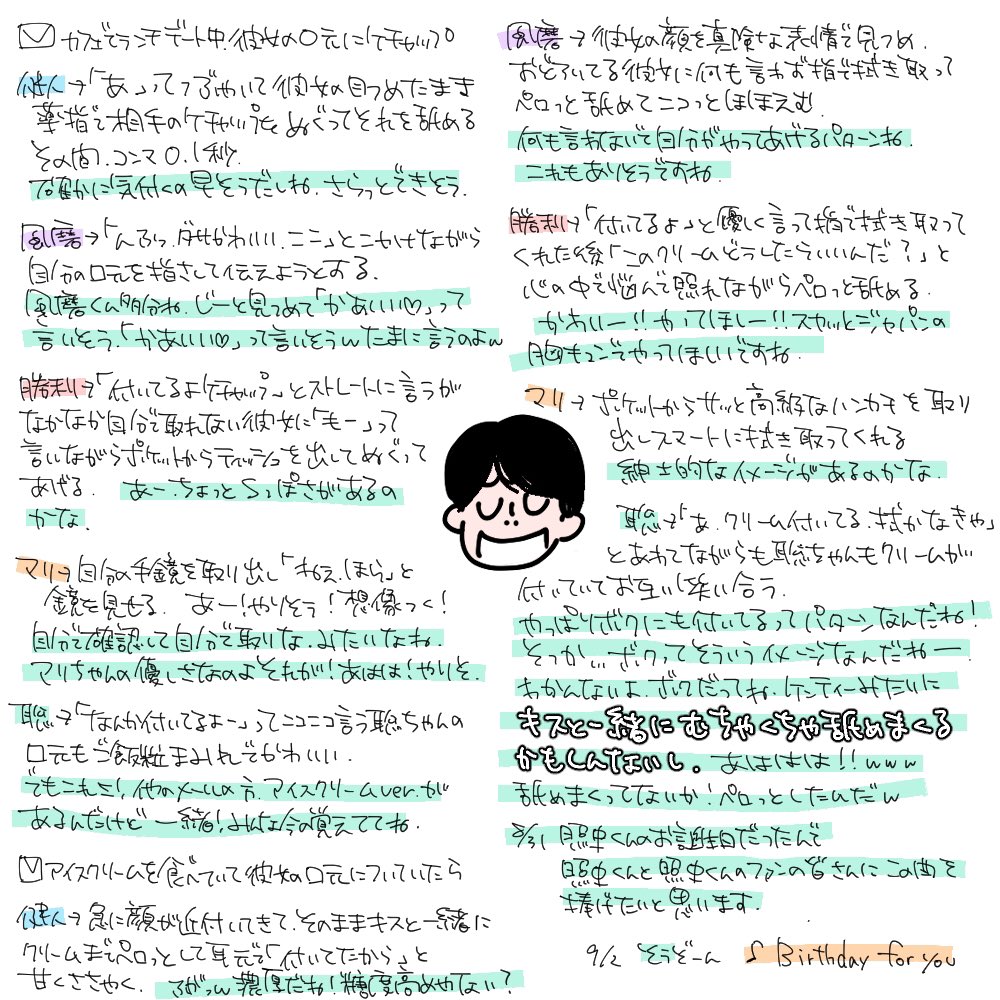 カフェでランチデート中、彼女の口元にケチャップ
健人→「あ、」ってつぶやいて彼女の目つめたまま
薬指で相手のケチャップをぬぐってそれを舐める
その間、コンマ0.1秒。
確かに気付くの早そうだしね。さらっとできそう。
風磨→「んふっ、ダセかわいい、ここ」とニヤけながら
自分の口元を指さして伝えようとする。
風磨くん多分ね、じーと見つめて「かあいい♡」って
言いそう。「かあいい♡」って言いそうwたまに言うのよw
勝利→「付いてるよケチャップ」とストレートに言うが
なかなか自分で取れない彼女に「もー」って
言いながらポケットからティッシュを出してぬぐって
あげる。 あー、ちょっとSっぽさがあるの
かな。
マリ→自分の手鏡を取り出し「ねえ、ほら」と
鏡を見せる。 あー!やりそう!想像つく!
自分で確認して自分で取りな、みたいなね。
マリちゃんの優しさなのよそれが!あはは!やりそ。
聡→「なんか付いてるよー」ってニコニコ言う聡ちゃんの
口元もご飯粒まみれでかわいい。
でもこれと!他のメールの方、アイスクリームver.が
あるんだけど一緒!みんな今の覚えててね。
アイスクリームを食べていて彼女の口元についていたら
健人→急に顔が近付いてきて、そのままキスと一緒に
クリームまでペロっとして耳元で「付いてたから」と
甘くささやく。 ふがっw濃厚だね!糖度高めやない?
風磨→彼女の顔を真険な表情で見つめ、
おどろいてる彼女に何も言わず指で拭き取って
ペロっと舐めてニコっとほほえむ。
何も言わないで自分がやってあげるパターンね。
これもありそうですね。
勝利→「付いてるよ」と優しく言って指で拭き取って
くれた後「このクリームどうしたらいいんだ?」と
心の中で悩んで照れながらペロっと舐める。
かわいー!!やってほしー!!スカッとジャパンの
胸キュンでやってほしいですね。
マリ→ポケットからサッと高級なハンカチを取り
出しスマートに拭き取ってくれる
紳士的なイメージがあるのかな。
聡→「あ、クリーム付いてる、拭かなきゃ」
とあわてながらも聡ちゃんもクリームが
付いていてお互い笑い合う。
やっぱりボクにも付いてるってパターンなんだね!
そっか…ボクってそういうイメージなんだねー。
わかんないよ、ボクだってね、ケンティーみたいに
キスと一緒にむちゃくちゃ舐めまくる
かもしんないし。 あははは!!www
舐めまくってないか!ペロっとしたんだw
8/31 照史くんのお誕生日だったんで
照史くんと照史くんのファンの皆さんにこの曲を
捧げたいと思います。
9/2 そうぞーん ♪Birthday for you